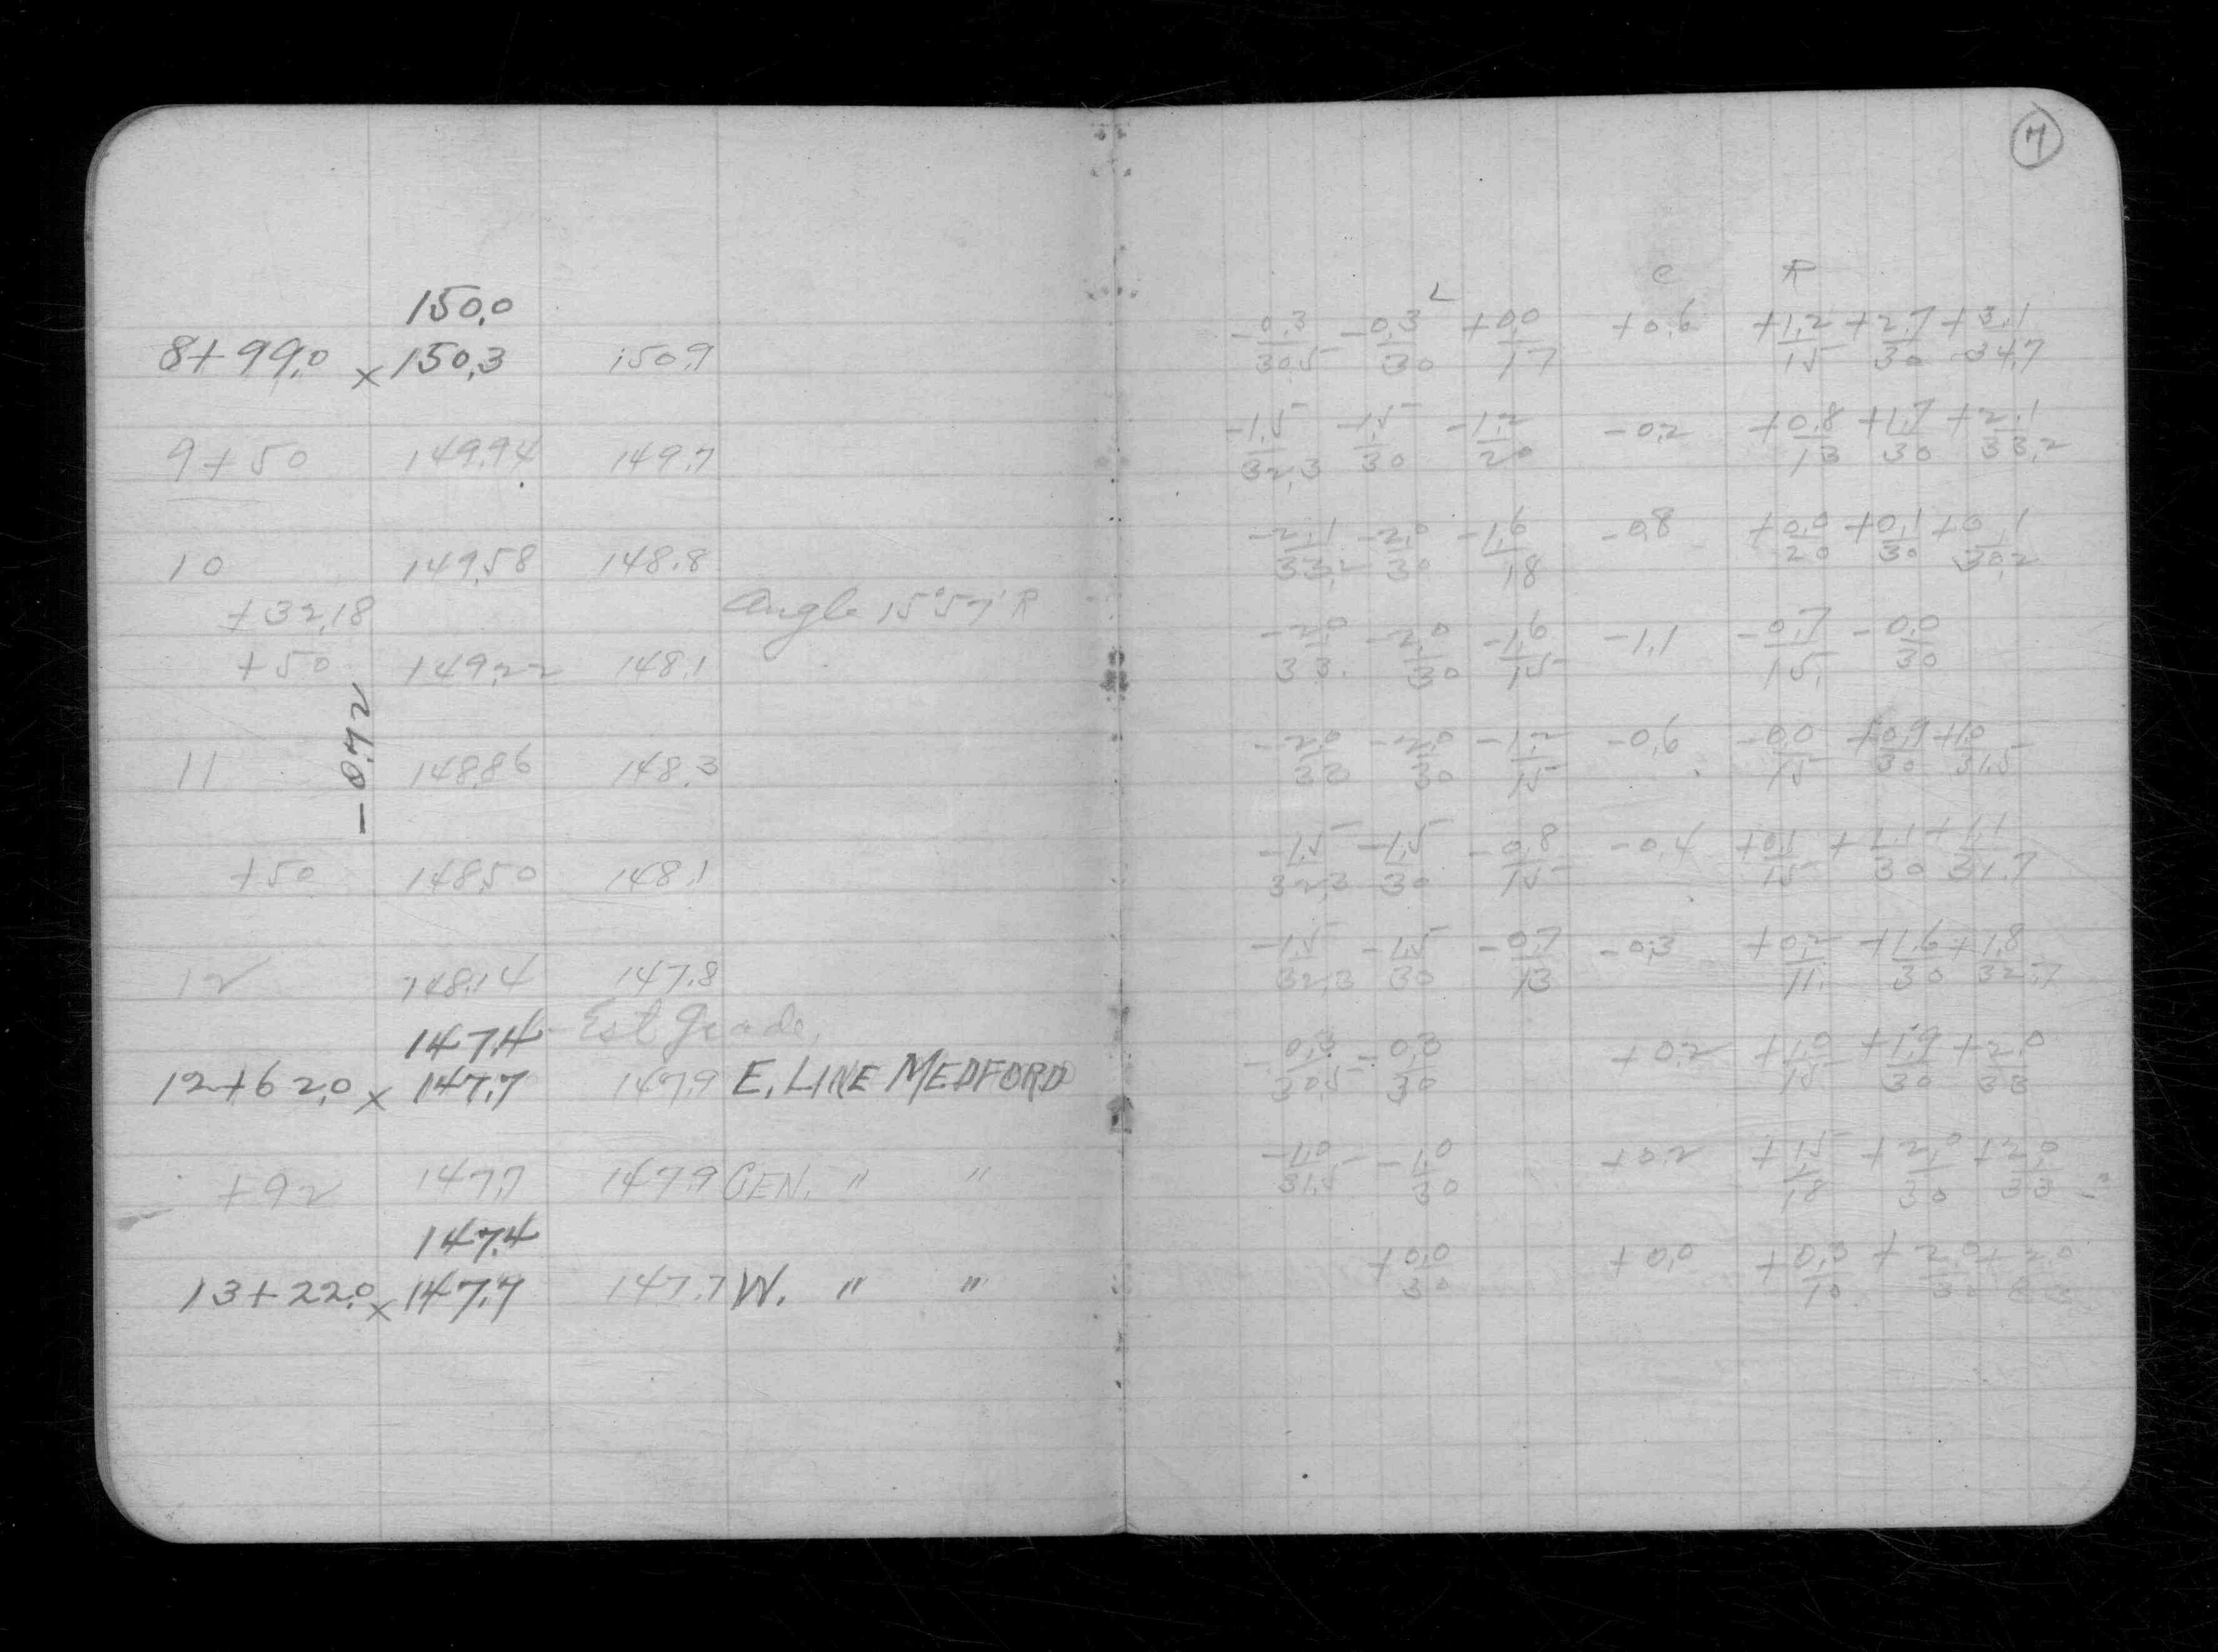 7
L C R
150.0
8+99.0 x 150.3 150.9
-0.3/30.5 -0.3/30 +0.0/17 +0.6 +1.2/15 +2.7/30 +3.1/34.7
9+50 149.94 149.7
-1.5/32.3 -1.5/30 -1.2/20 -0.2 +0.8/13 +1.7/30 +2.1/33.2
10 149.58 148.8
-2.1/33.2 -2.0/30 -1.6/18 -0.8 +0.0/20 +0.1/30 +0.1/30.2
+32.18 Angle 15°57' R
+50 149.22 148.1
-2.0/33. -2.0/30 -1.6/15 -1.1 -0.7/15. -0.0/30
-0.72
11 148.86 148.3
-2.0/33 -2.0/30 -1.2/15 -0.6 -0.0/15 +0.9/30 +1.0/31.5
+50 148.50 148.1
-1.5/32.3 -1.5/30 -0.8/15 -0.4 +0.1/15 +1.1/30 +1.1/31.7
12 148.14 147.8
-1.5/32.3 -1.5/30 -0.7/13 -0.3 +0.2/11. +1.6/30 +1.8/32.7
147.4 - Est Grade,
12+62.0 x 147.7 147.9 E. LINE MEDFORD
-0.3/30.5 -0.3/30 +0.2 +1.0/15 +1.9/30 +2.0/33
+92 147.7 147.9 CEN. " "
-1.0/31.5 -1.0/30 +0.2 +1.5/18 +2.0/30 +2.0/33
147.4
13+22.0 x 147.7 147.7 W. " "
+0.0/30 +0.0 +0.3/10 +2.0/30 +2.0